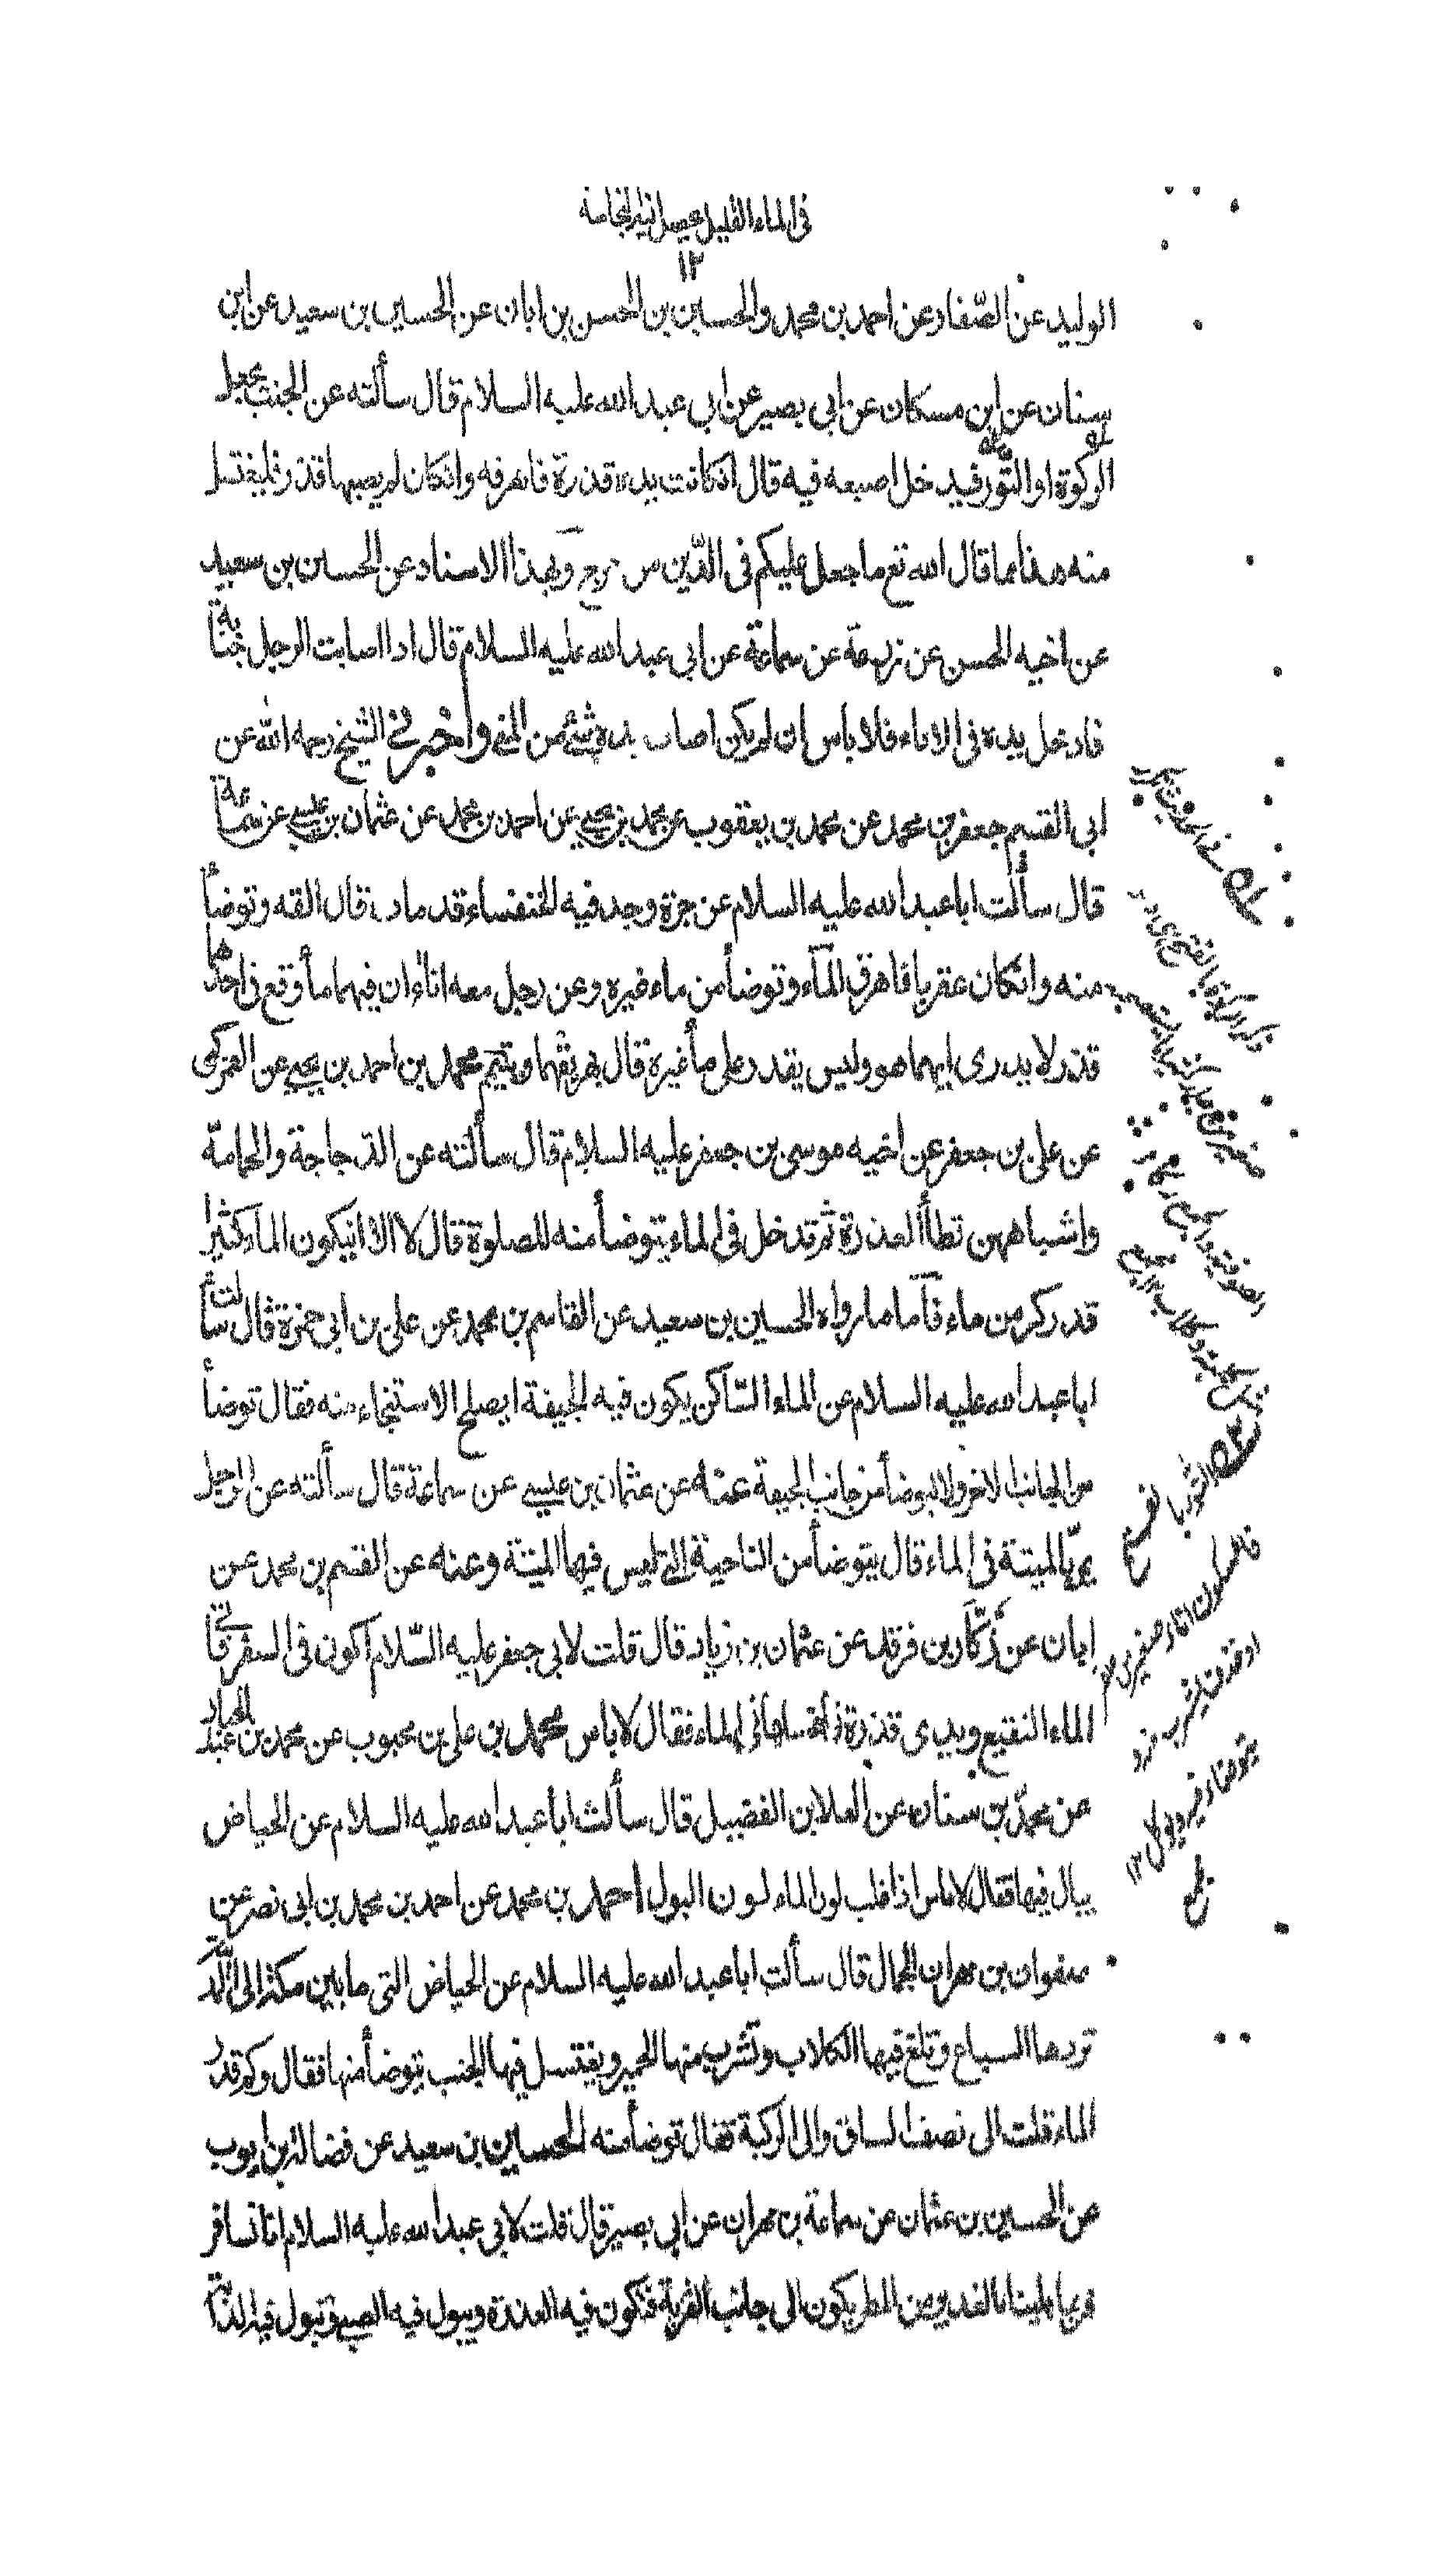 فى الماء القليل يحصل فيه النجاسة
١٢
الوليد عن الصّفار عن احمد بن محمد والحسين بن الحسن بن ابان عن الحسين بن سعيد عن ابن
سنان عن ابن مسكان عن ابى بصير عن ابى عبد الله عليه السلام قال سألته عن الجنب يجعل
الركوة او التّور فيدخل اصبعه فيه قال ان كانت يده قذرة فاهرقه وان كان لم يصبها قذر فليغتسل
منه هذا مما قال الله تع ما جعل عليكم فى الدّين من حرج وبهذا الاسناد عن الحسين بن سعيد
عن اخيه الحسن عن زرعة عن سماعة عن ابى عبد الله عليه السلام قال اذا اصابت الرجل جنابة
فادخل يده فى الاناء فلا باس ان لم يكن اصاب يده شئ من المنى واخبرنى الشيخ رحمه الله عن
ابى القسم جعفر بن محمد عن محمد بن يعقوب عن محمد بن يحيى عن احمد بن محمد عن عثمان بن عيسى عن سماعة
قال سألت ابا عبد الله عليه السلام عن جرّة وجد فيه الخنفساء قد مات قال القه وتوضأ
منه وان كان عقربا فاهرق المآء وتوضأ من ماء غيره وعن رجل معه اناءان فيهما مأ وقع فى احدهما
قذر لا يدرى ايهما هو وليس يقدر على مأ غيره قال يهريقهما ويتيمّم محمد بن احمد بن يحيى عن العمركى
عن على بن جعفر عن اخيه موسى بن جعفر عليه السلام قال سألته عن الدّجاجة والحمامة
واشباههن تطأ العذرة ثم تدخل فى الماء يتوضأ منه للصلوة قال لا الّا ان يكون الماء كثيرا
قدر كر من ماء فآما ما رواه الحسين بن سعيد عن القاسم بن محمد عن على بن ابى حمزة قال سألت
ابا عبد الله عليه السلام عن الماء السّاكن يكون فيه الجيفة ايصلح الاستنجاء منه فقال توضأ
من الجانب الاخر ولا تتوضأ من جانب الجيفة عنه عن عثمان بن عيسى عن سماعة قال سألته عن الرجل
يمرّ بالميتة فى الماء قال يتوضأ من الناحية التى ليس فيها الميتة وعنه عن القسم بن محمد عن
ابان عن زكّار بن فرقد عن عثمان بن زياد قال قلت لابى جعفر عليه السّلام اكون فى السفر فآتى
الماء النقيع ويدى قذرة فأغمسها فى الماء فقال لا باس محمد بن على بن محبوب عن محمد بن عبد الجبار
عن محمّد بن سنان عن العلا بن الفضيل قال سألت ابا عبد الله عليه السلام عن الحياض
يبال فيها فقال لا باس اذا غلب لون الماء لون البول احمد بن محمد عن احمد بن محمد بن ابى نصر عن
صفوان بن مهران الجمال قال سألت ابا عبد الله عليه السلام عن الحياض التى ما بين مكة الى المدينة
تردها السباع وتلغ فيها الكلاب وتشرب منها الحمير ويغتسل فيها الجنب يتوضأ منها فقال وكم قدر
الماء قلت الى نصف الساق والى الركبة فقال توضأ منه الحسين بن سعيد عن فضالة بن ايوب
عن الحسين بن عثمان عن سماعة بن مهران عن ابى بصير قال قلت لابى عبد الله عليه السلام انا نسافر
فربما بلينا بالغدير من المطر يكون الى جانب القرية فتكون فيه العذرة ويبول فيه الصبى وتبول فيه الدابّة